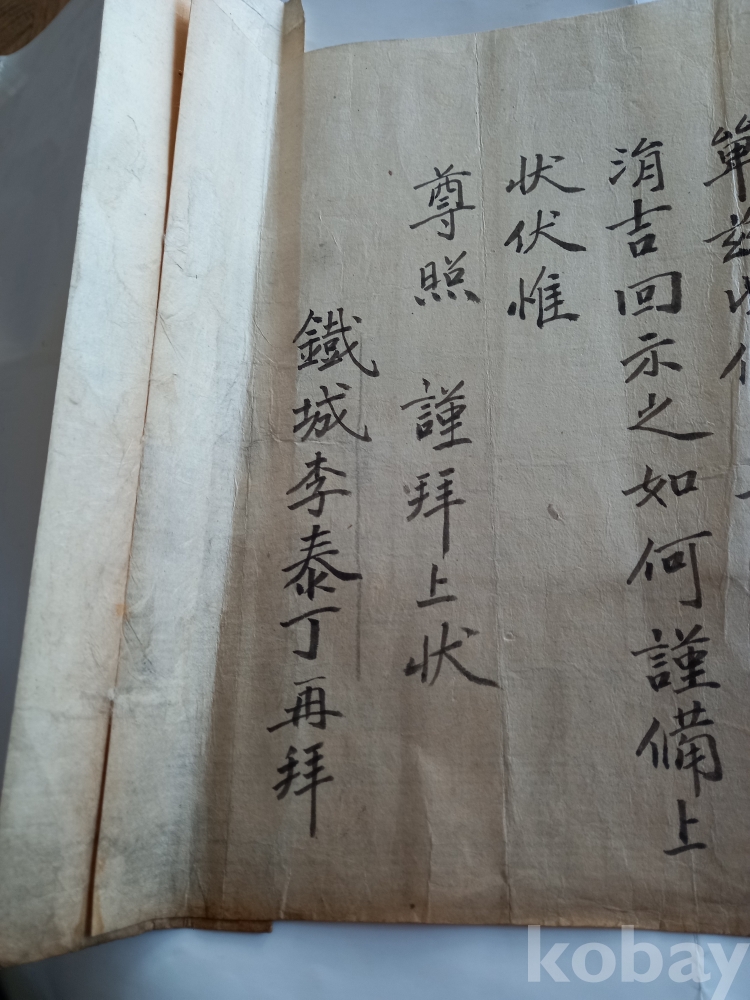 單玆 
涓吉回示之如何謹備上
狀伏惟
尊照 謹拜上狀
鐵城李泰丁再拜
kobay